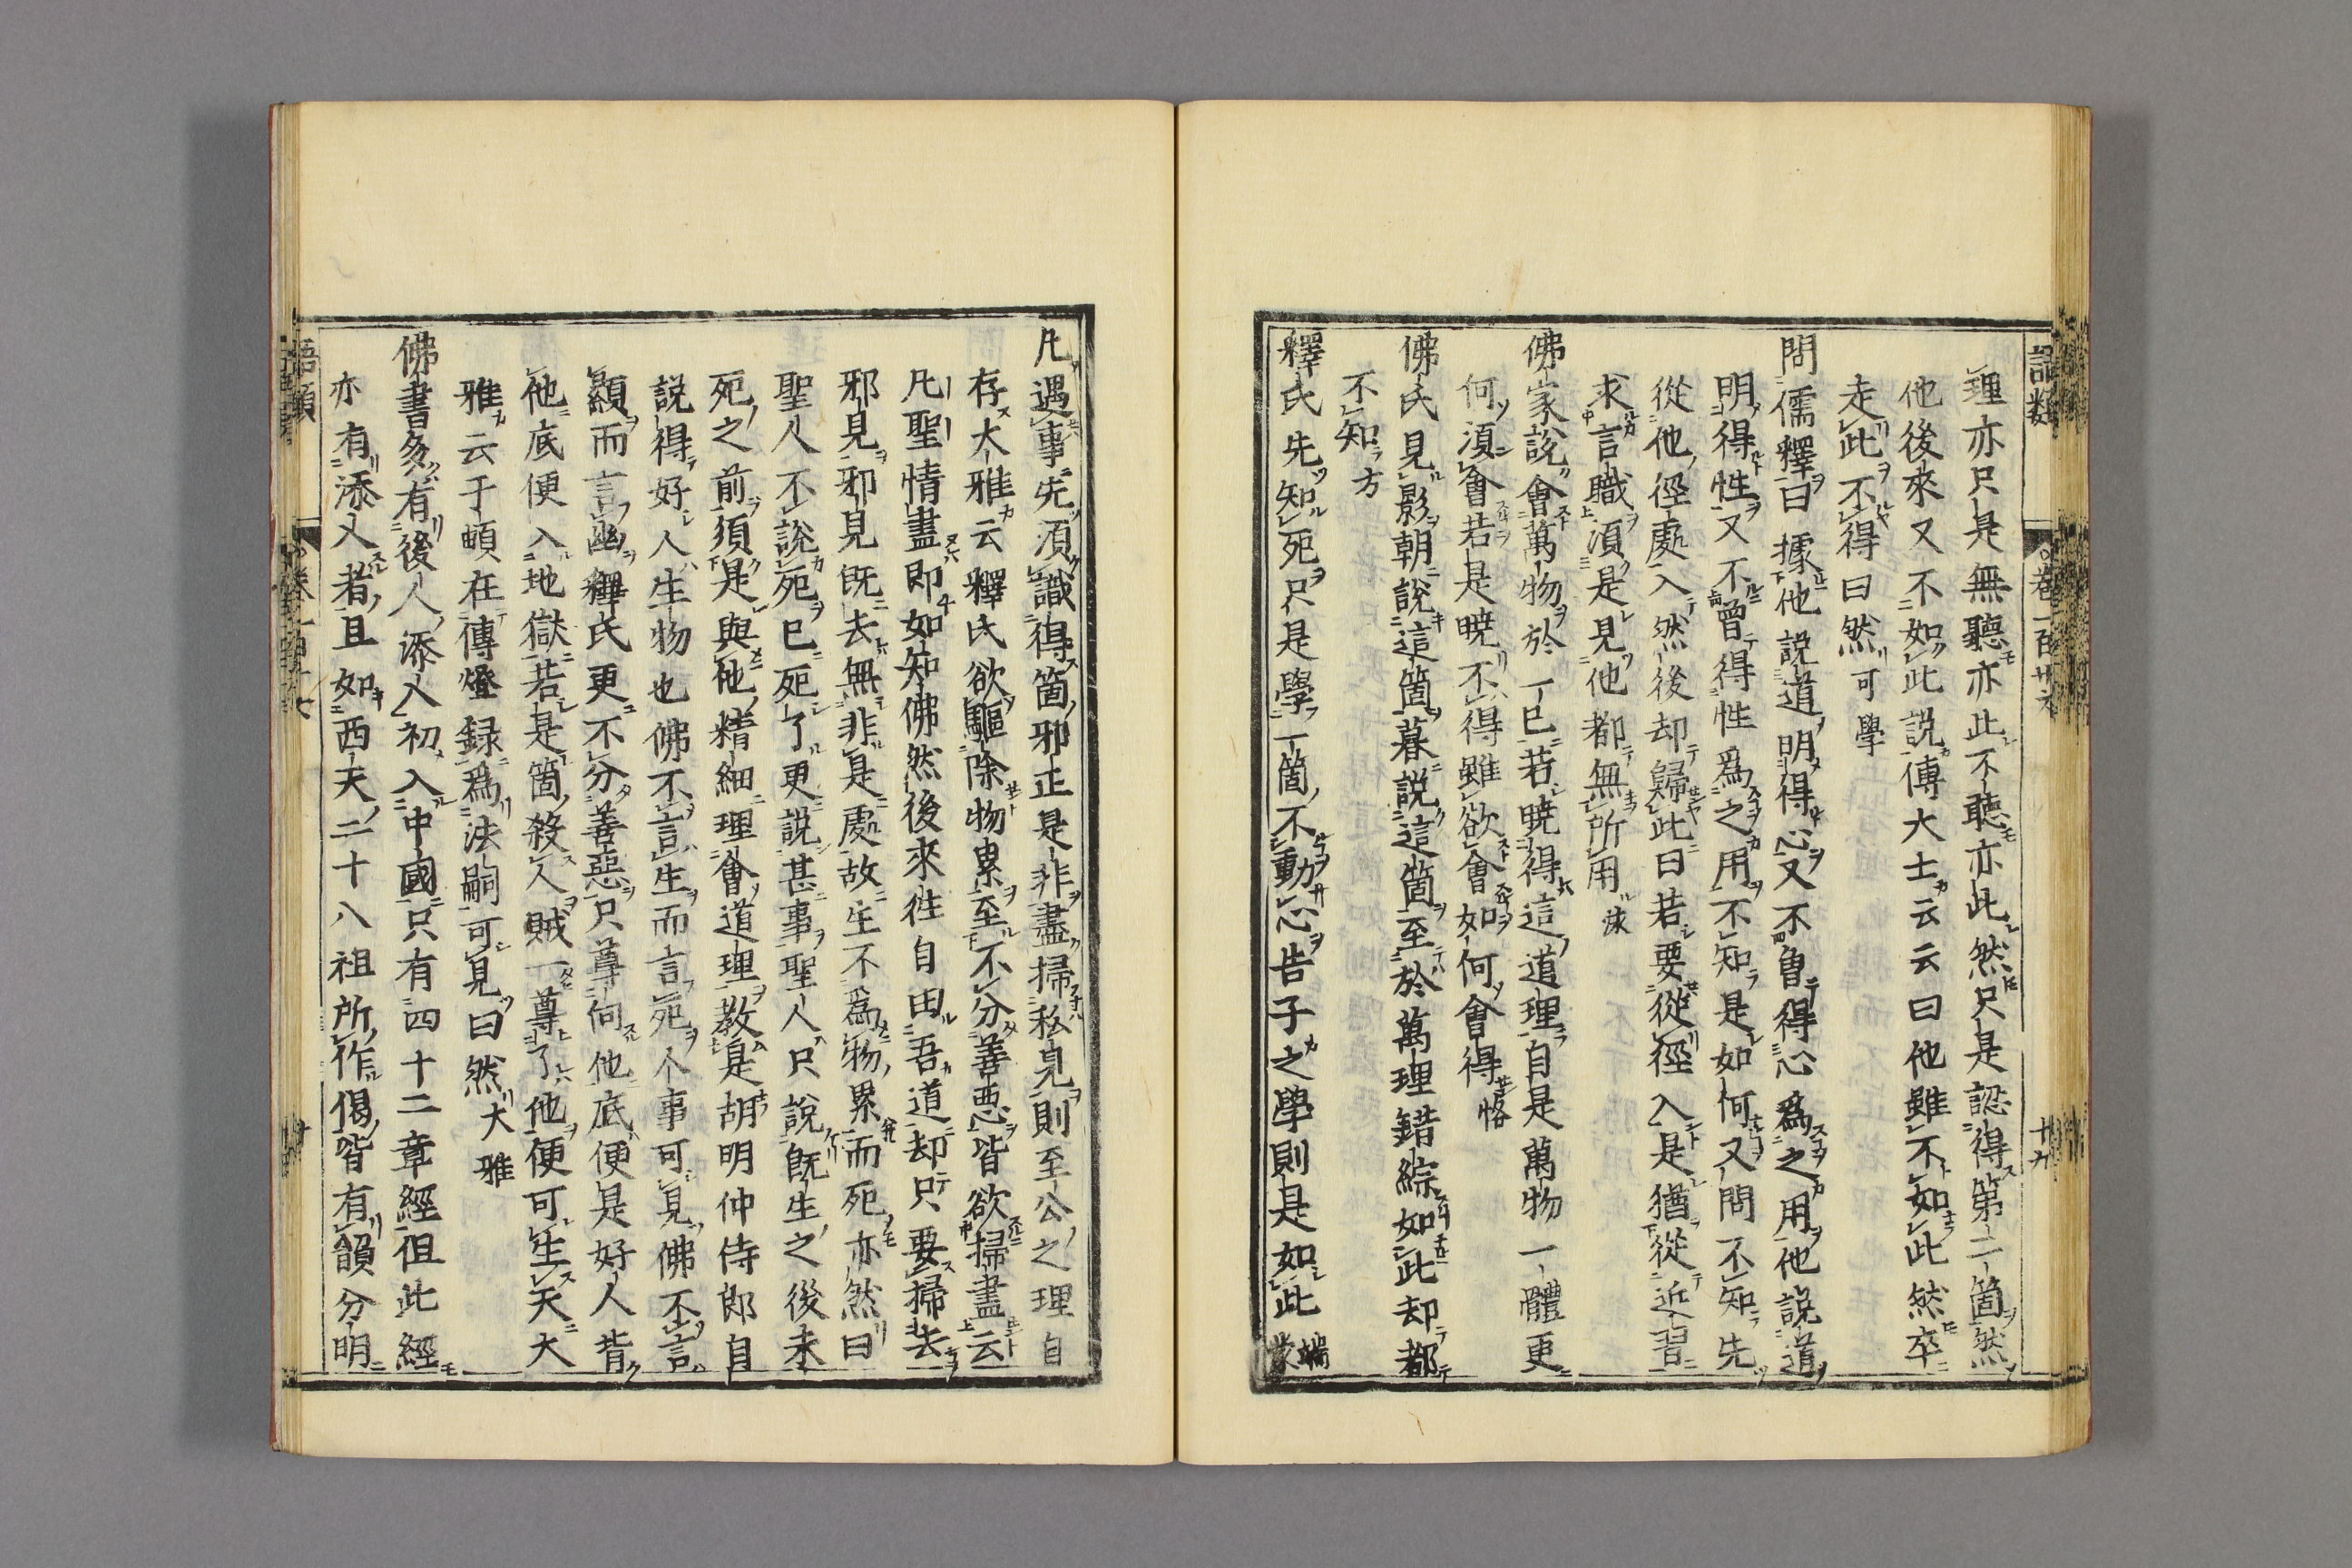 語類 卷一百廿六 十九
理亦只是無聽亦此不聽亦此然只是認得第二箇然
他後來又不如此説傅大士云云曰他雖不如此然卒
走此不得曰然可學
問儒釋曰據他説道明得心又不曾得心爲之用他說道
明得性又不曾得性爲之用不知是如何又問不知先
從他徑處入然後却歸此曰若要從徑入是猶從近習
求言職須是見他都無所用
佛家說會萬物於一已若曉得這道理自是萬物一體更
何須會若是曉不得雖欲會如何會得恪
佛氏見影朝說這箇暮説這箇至於萬理錯綜如此却都
不知方
釋氏先知死只是學一箇不動心告子之學則是如此端蒙
凡遇事先須識得箇邪正是非盡掃私見則至公之理自
存大雅云釋氏欲驅除物累至不分善惡皆欲掃盡云
凡聖情盡即如知佛然後來徃自由吾道却只要掃去
邪見邪見既去無非是處故生不爲物累而死亦然曰
聖人不說死已死了更説甚事聖人只說既生之後未
死之前須是與他精細理會道理教是胡明仲侍郎自
説得好人生物也佛不言生而言死人事可見佛不言
顯而言幽釋氏更不分善惡只尊向他底便是好人背
他底便入地獄若是箇殺人賊一尊了他便可生天大
雅云于頔在傳燈録爲法嗣可見曰然大雅
佛書多有後人添入初入中國只有四十二章經但此經
亦有添入者且如西天二十八祖所作偈皆有韻分明
語類